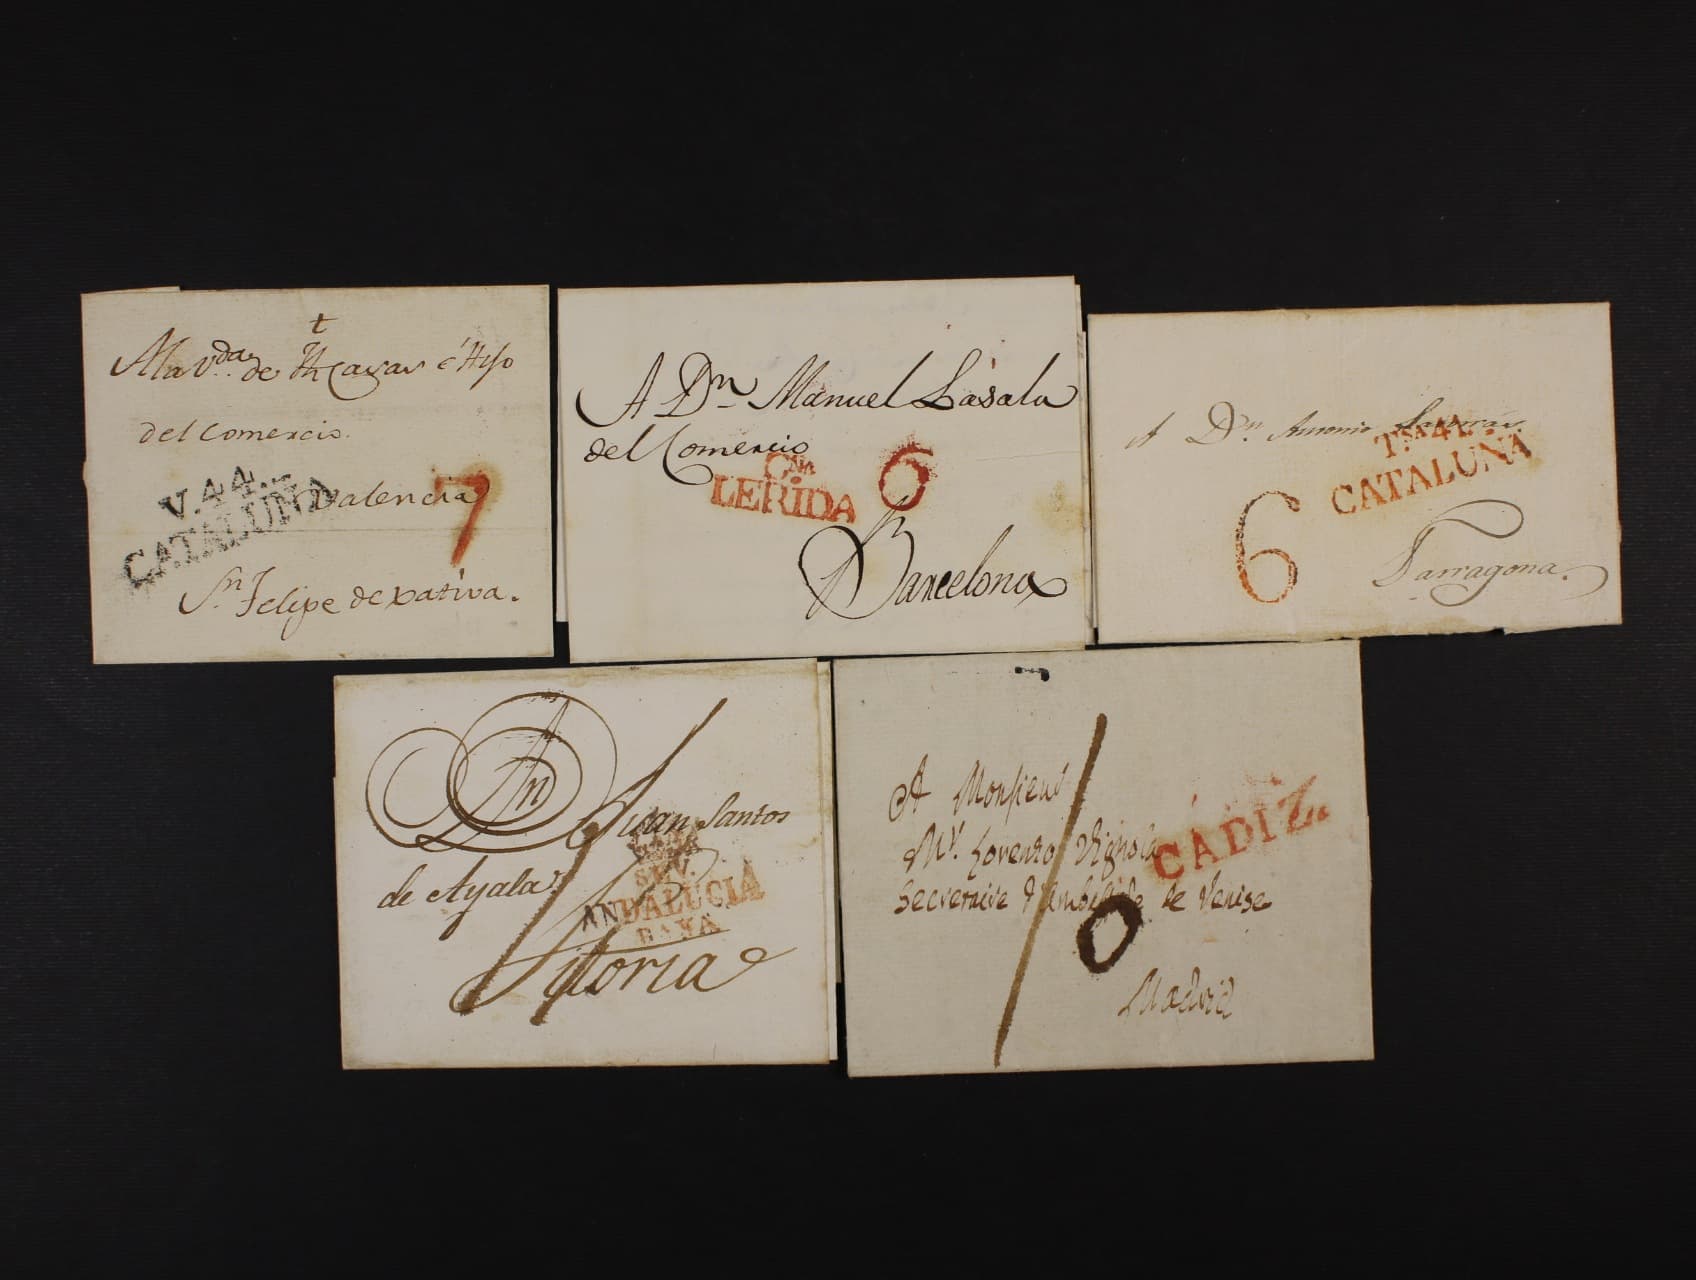 †
A la V.da de Th Casas é Hijo
del Comercio.
Valencia
Sn. Felipe de Xativa.
V.44.
CATALUÑA
7
A Dn. Manuel Lásala
del Comercio
Barcelona
CÑA
LERIDA
6
A Dn. Antonio
Tarragona.
TNA 41.
CATALUÑA
6
A Dn Juan Santos
de Ayala
Vitoria
ANDALUCIA
BAXA
A Monsieur
Mr. Lorenzo Vignola
Secretaire d'Ambassade de Venise
Madrid
CADIZ.
0